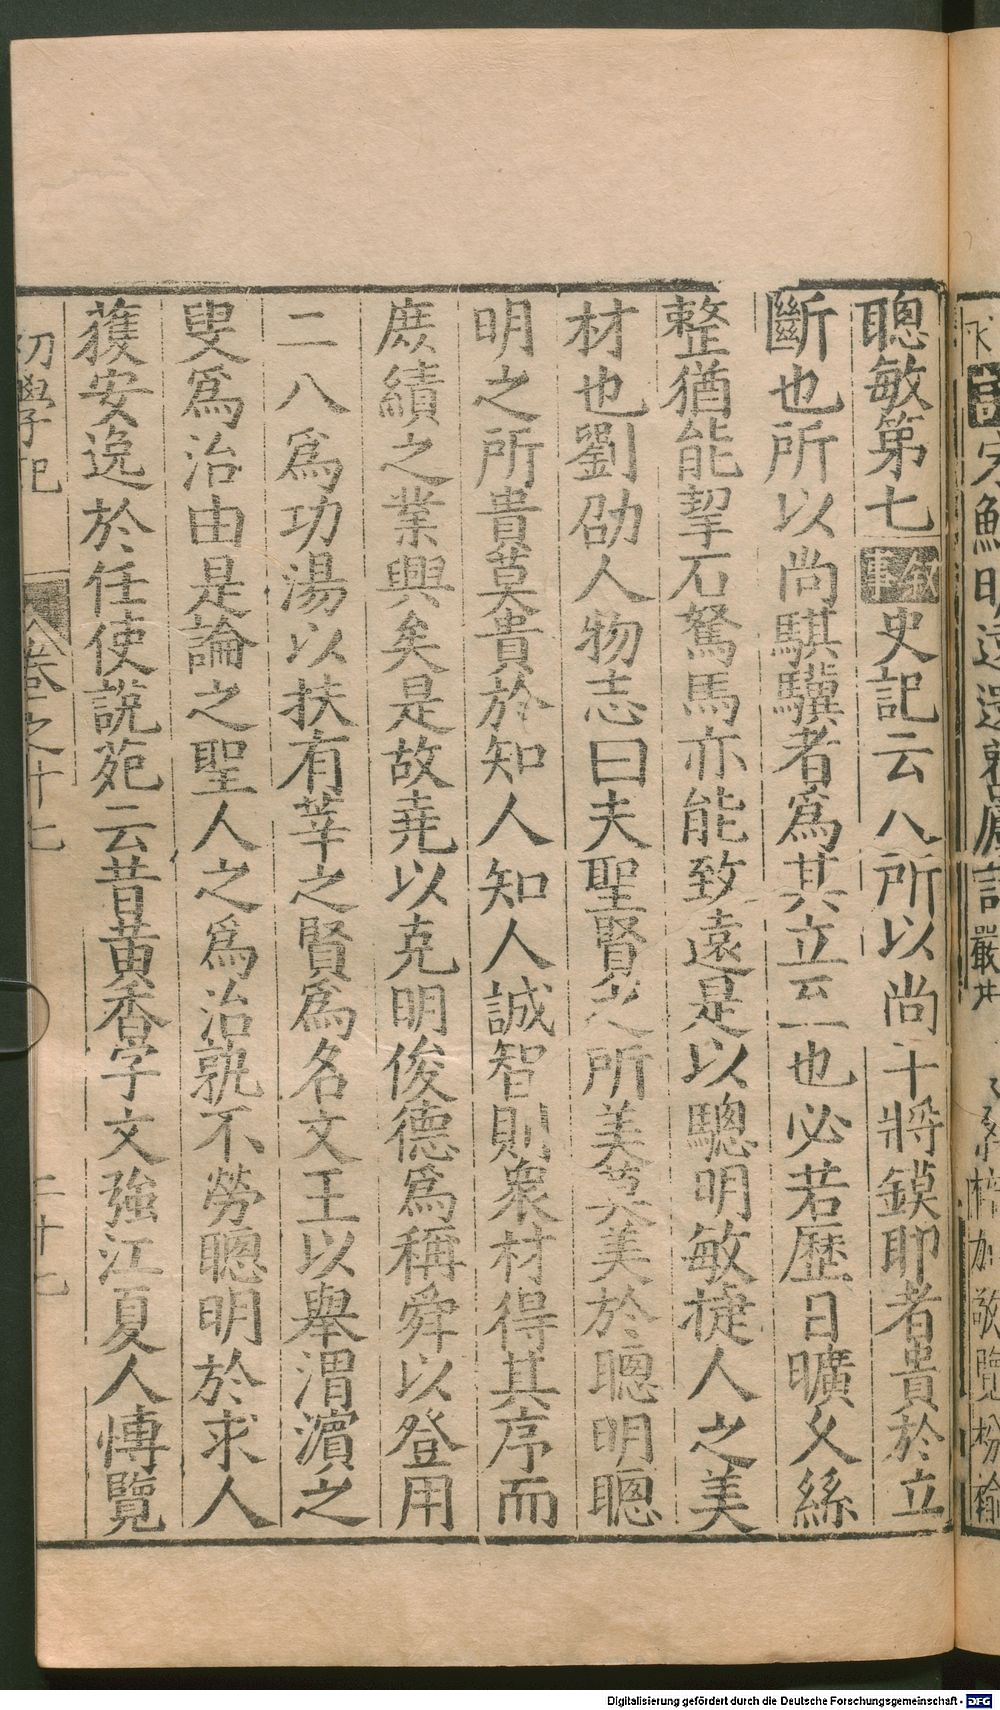 聰敏第七 叙事 史記云人所以尚干將鏌耶者貴於立
斷也所以尚騏驥者爲其立至也必若歷日曠久絲
整猶能挈石駑馬亦能致遠是以驄明敏捷人之美
材也劉劭人物志曰夫聖賢之所美莫美於聰明聰
明之所貴莫貴於知人知人誠智則衆材得其序而
庻績之業興矣是故堯以克明俊德爲稱舜以登用
二八爲功湯以扶有莘之賢爲名文王以舉渭濵之
叟爲治由是論之聖人之爲治孰不勞聰明於求人
獲安逸於任使說苑云昔黄香字文強江夏人慱覽
初學記 卷之十七 二十七
Digitalisierung gefördert durch die Deutsche Forschungsgemeinschaft - DFG